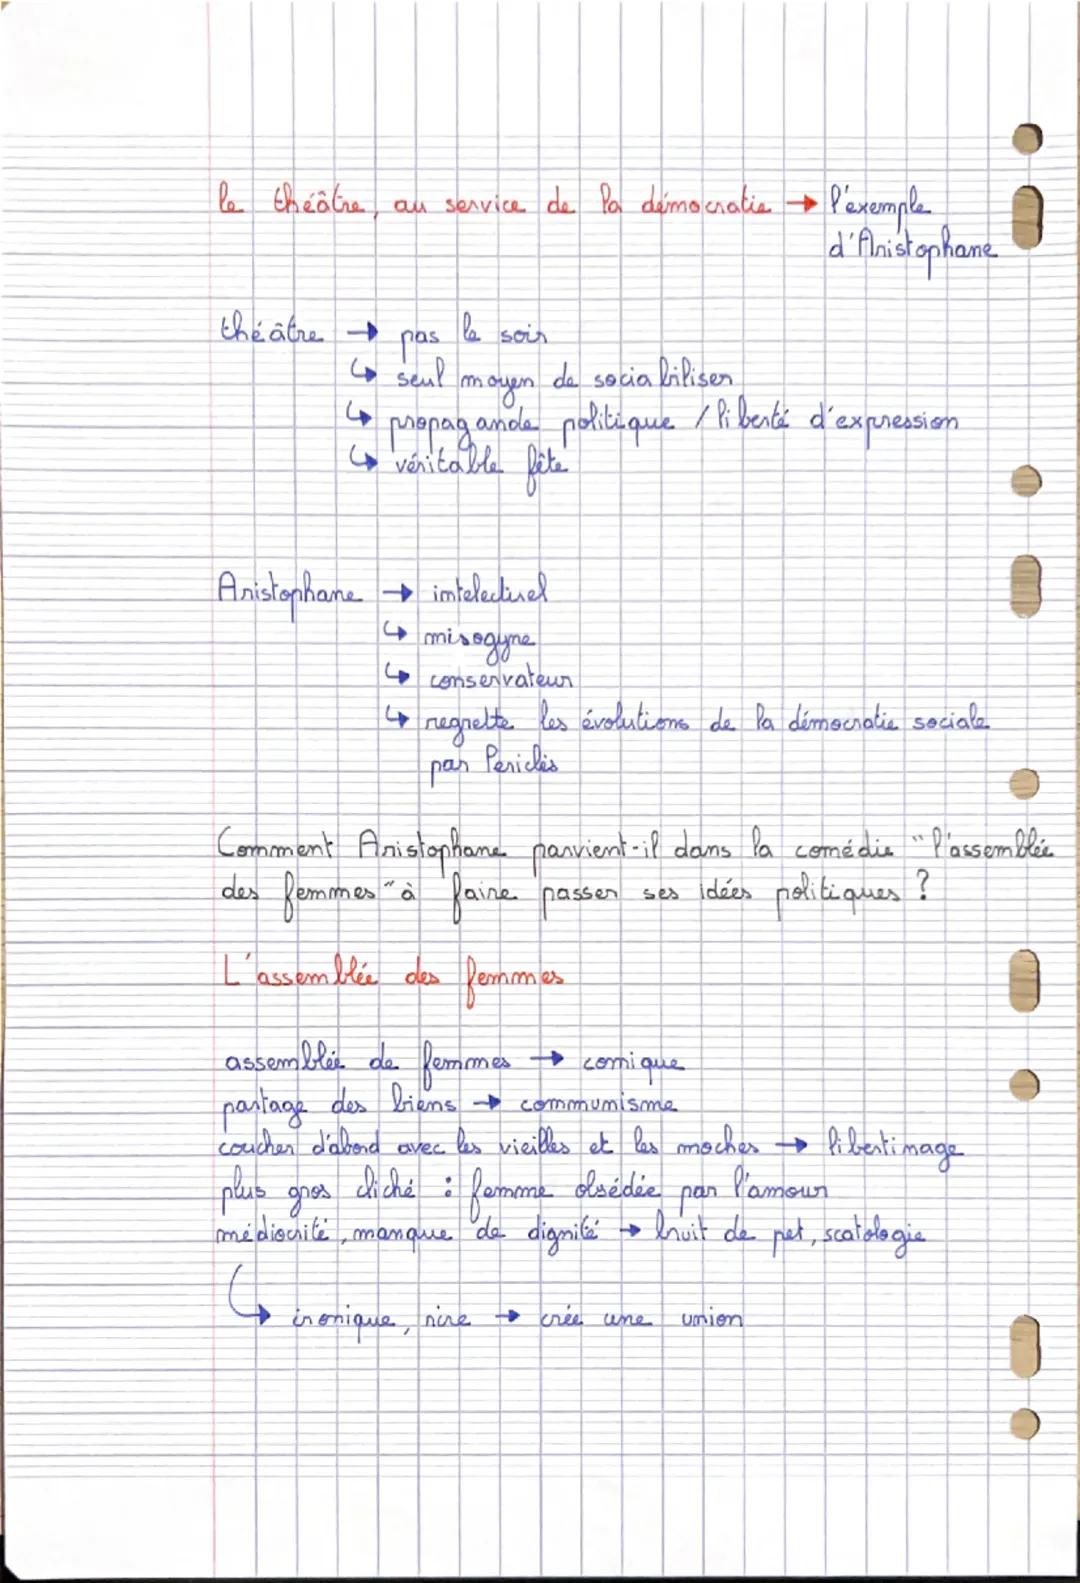 le théâtre, au service de la démocratie → l'exemple
d'Aristophane
théâtre → pas le soir
↳ seul moyen de sociabiliser
↳ propagande politique / liberté d'expression
↳ véritable fête
Aristophane → intelectuel
↳ misogyne
↳ conservateur
↳ regrette les évolutions de la démocratie sociale
par Periclès
Comment Aristophane parvient-il dans la comédie "l'assemblée
des femmes" à faire passer ses idées politiques ?
L'assemblée des femmes
assemblée de femmes → comique
partage des biens → communisme
coucher d'abord avec les vieilles et les moches → libertinage
plus gros cliché : femme obsédée par l'amour
médiocrité, manque de dignité → bruit de pet, scatologie
↳ ironique, rire → crée une union